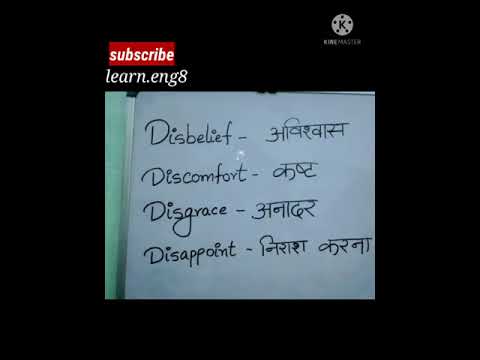 subscribe
learn.eng8
KINEMASTER
Disbelief - अविश्वास
Discomfort - कष्ट
Disgrace - अनादर
Disappoint - निराश करना